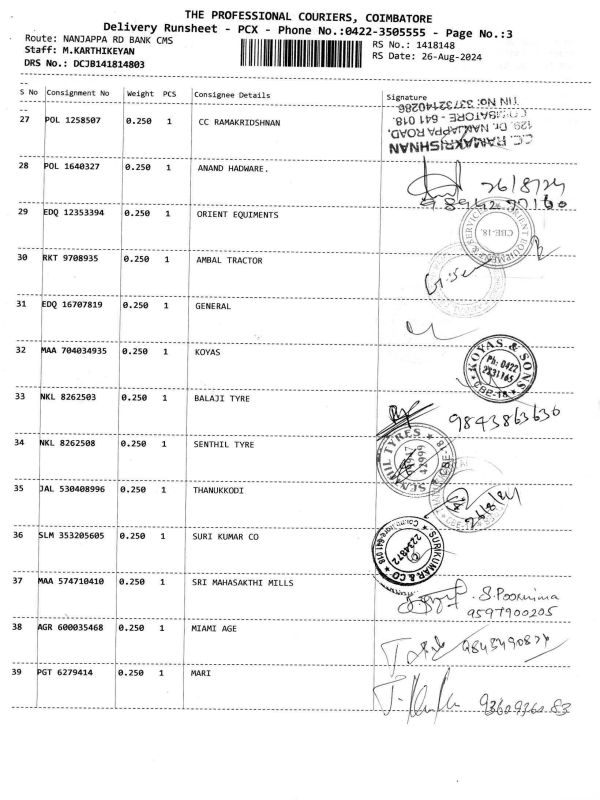 THE PROFESSIONAL COURIERS, COIMBATORE
Delivery Runsheet - PCX - Phone No.:0422-3505555 - Page No.:3
Route: NANJAPPA RD BANK CMS
Staff: M.KARTHIKEYAN
DRS No.: DCJB141814803
RS No.: 1418148
RS Date: 26-Aug-2024
S No Consignment No Weight PCS Consignee Details Signature
27 POL 1258507 0.250 1 CC RAMAKRISHNAN
C.C. RAMAKRISHNAN
129, Dr. NANJAPPA ROAD,
COIMBATORE - 641 018.
TIN No: 33732140286
28 POL 1640327 0.250 1 ANAND HADWARE.
26/8/24
29 EDQ 12353394 0.250 1 ORIENT EQUIMENTS
CBE-18.
30 RKT 9708935 0.250 1 AMBAL TRACTOR
31 EDQ 16707819 0.250 1 GENERAL
32 MAA 704034935 0.250 1 KOYAS
KOYAS & SONS
Ph: 0422
2231165
CBE-18
33 NKL 8262503 0.250 1 BALAJI TYRE
9843863636
34 NKL 8262508 0.250 1 SENTHIL TYRE
35 JAL 530408996 0.250 1 THANUKKODI
26/8/24
36 SLM 353205605 0.250 1 SURI KUMAR CO
SURIKUMAR & CO
2234872
Coimbatore-641 018
37 MAA 574710410 0.250 1 SRI MAHASAKTHI MILLS
S. Poornima
9597900205
38 AGR 600035468 0.250 1 MIAMI AGE
39 PGT 6279414 0.250 1 MARI
9360936083